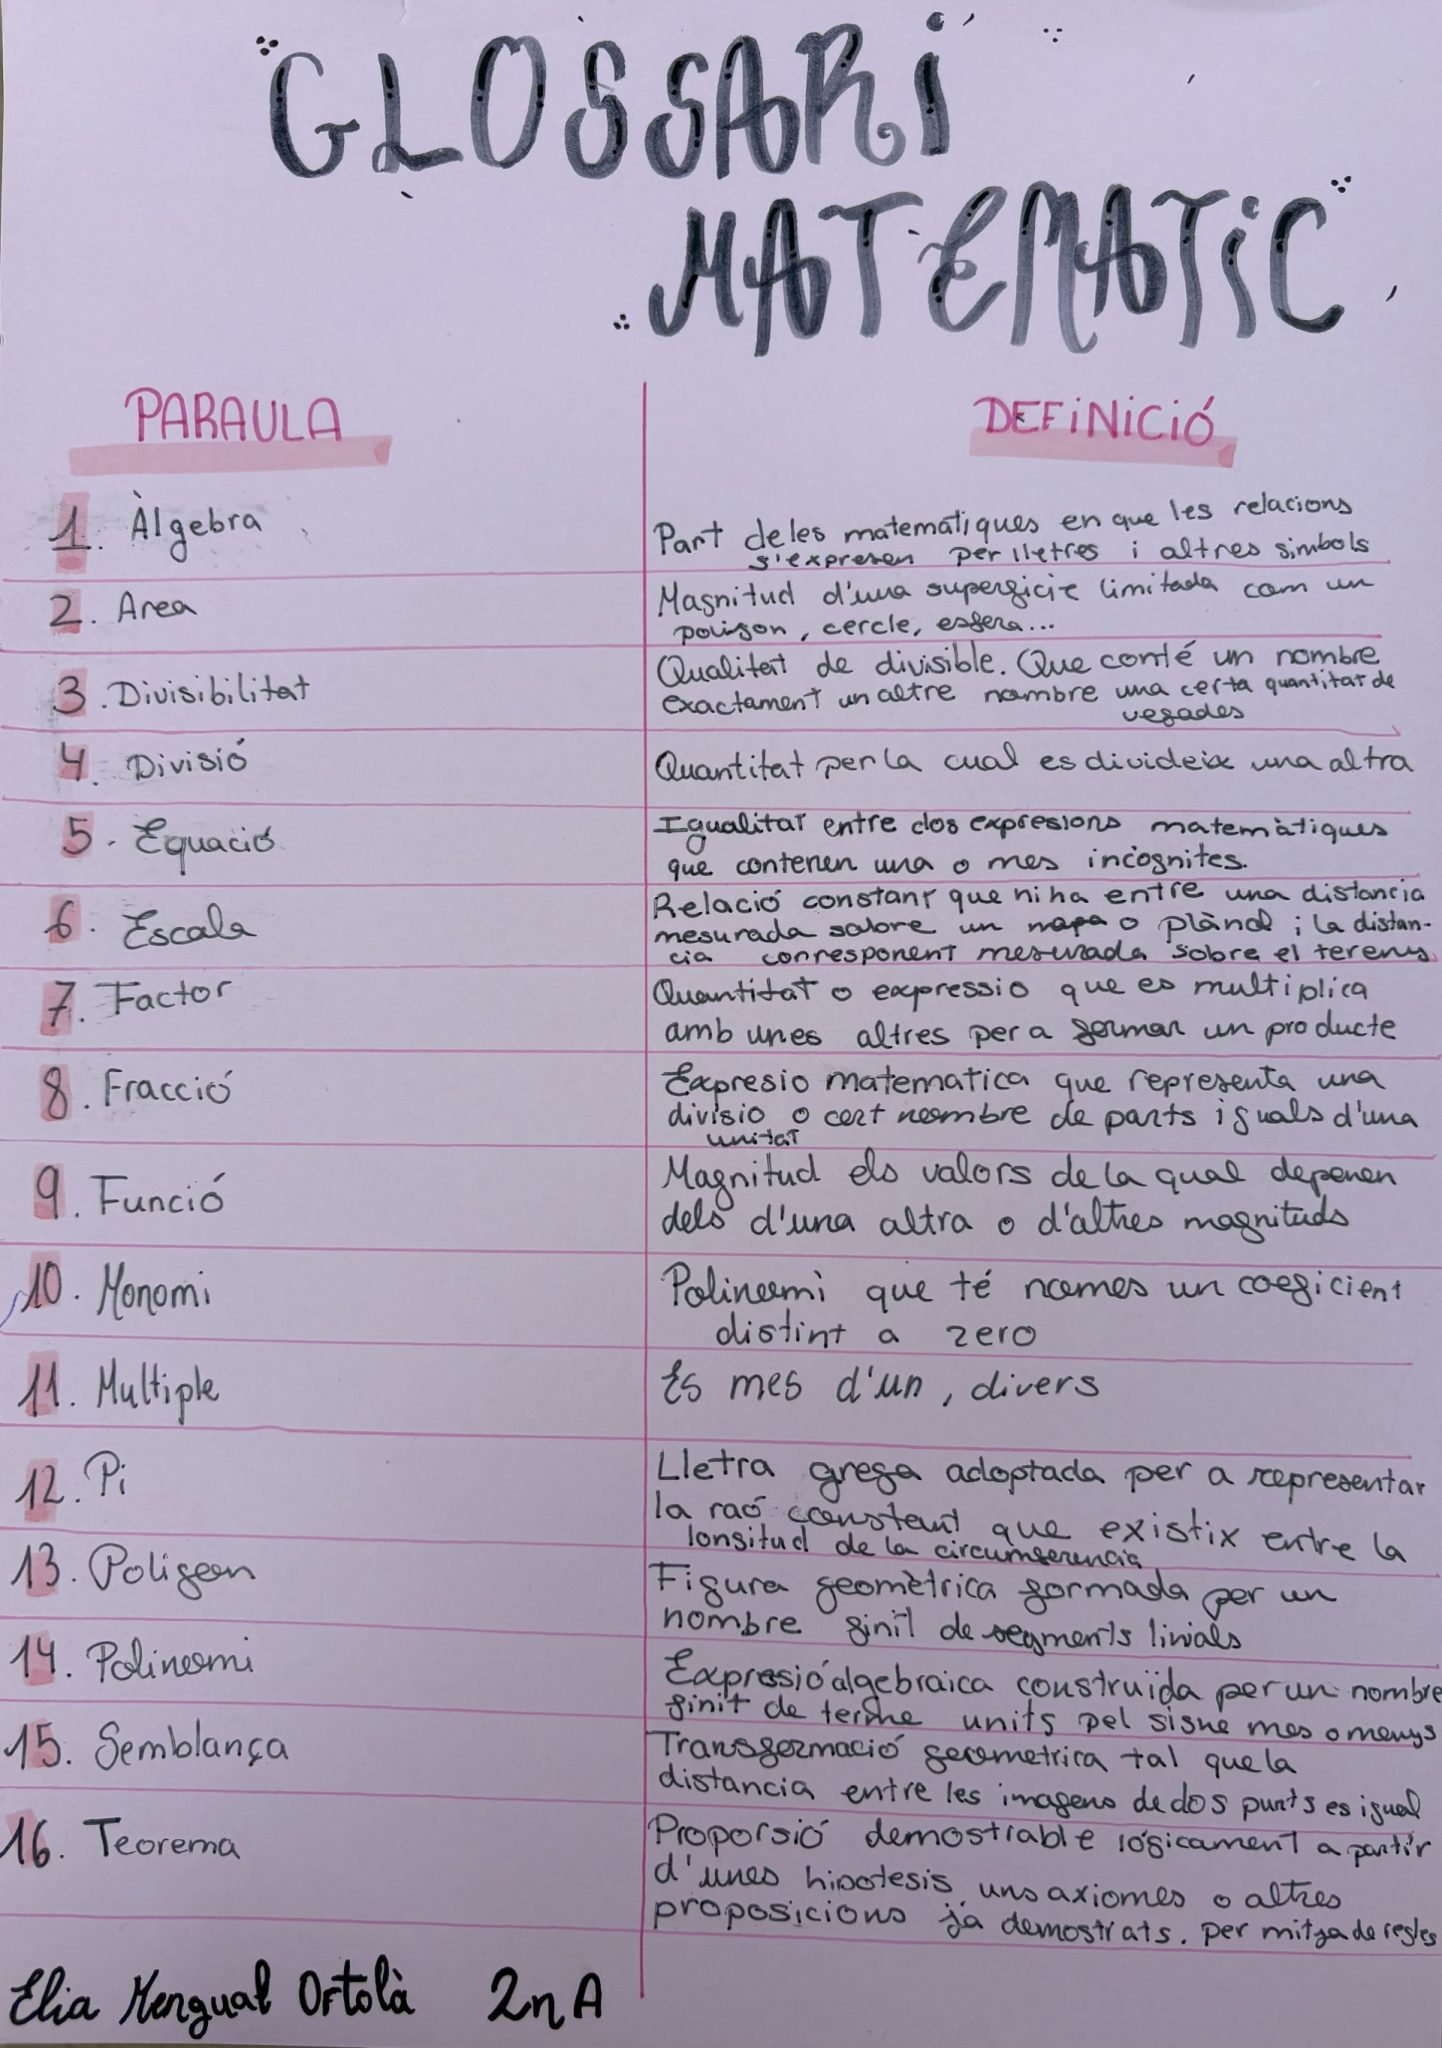 GLOSSARI
MATEMATIC
PARAULA
DEFINICIÓ
1. Àlgebra
Part de les matematiques en que les relacions
s'expresen per lletres i altres simbols
2. Area
Magnitud d'una superficie limitada com un
poligon, cercle, esfera...
3. Divisibilitat
Qualitat de divisible. Que conté un nombre
exactament un altre nombre una certa quantitat de
vegades
4. Divisió
Quantitat per la cual es divideix una altra
5. Equació
Igualitat entre dos expresions matemàtiques
que contenen una o mes incògnites.
6. Escala
Relació constant que ni ha entre una distancia
mesurada sobre un mapa o plànol i la distan-
cia corresponent mesurada sobre el tereny
7. Factor
Quantitat o expressio que es multiplica
amb unes altres per a formar un producte
8. Fracció
Expresio matematica que representa una
divisio o cert nombre de parts iguals d'una
unitat
9. Funció
Magnitud els valors de la qual depenen
dels d'una altra o d'altres magnituds
10. Monomi
Polinomi que té nomes un coeficient
distint a zero
11. Multiple
Es mes d'un, divers
12. Pi
Lletra grega adoptada per a representar
la raó constant que existix entre la
longitud de la circumferencia
13. Poligon
Figura geomètrica formada per un
nombre finit de segments linials
14. Polinomi
Expresió algebraica construïda per un nombre
finit de terme units pel signe mes o menys
15. Semblança
Transformació geometrica tal que la
distancia entre les imagens de dos punts es igual
16. Teorema
Proporsió demostrable lógicament a partir
d'unes hipotesis, uns axiomes o altres
proposicions ja demostrats. per mitja de regles
Elia Mengual Ortolà 2n A